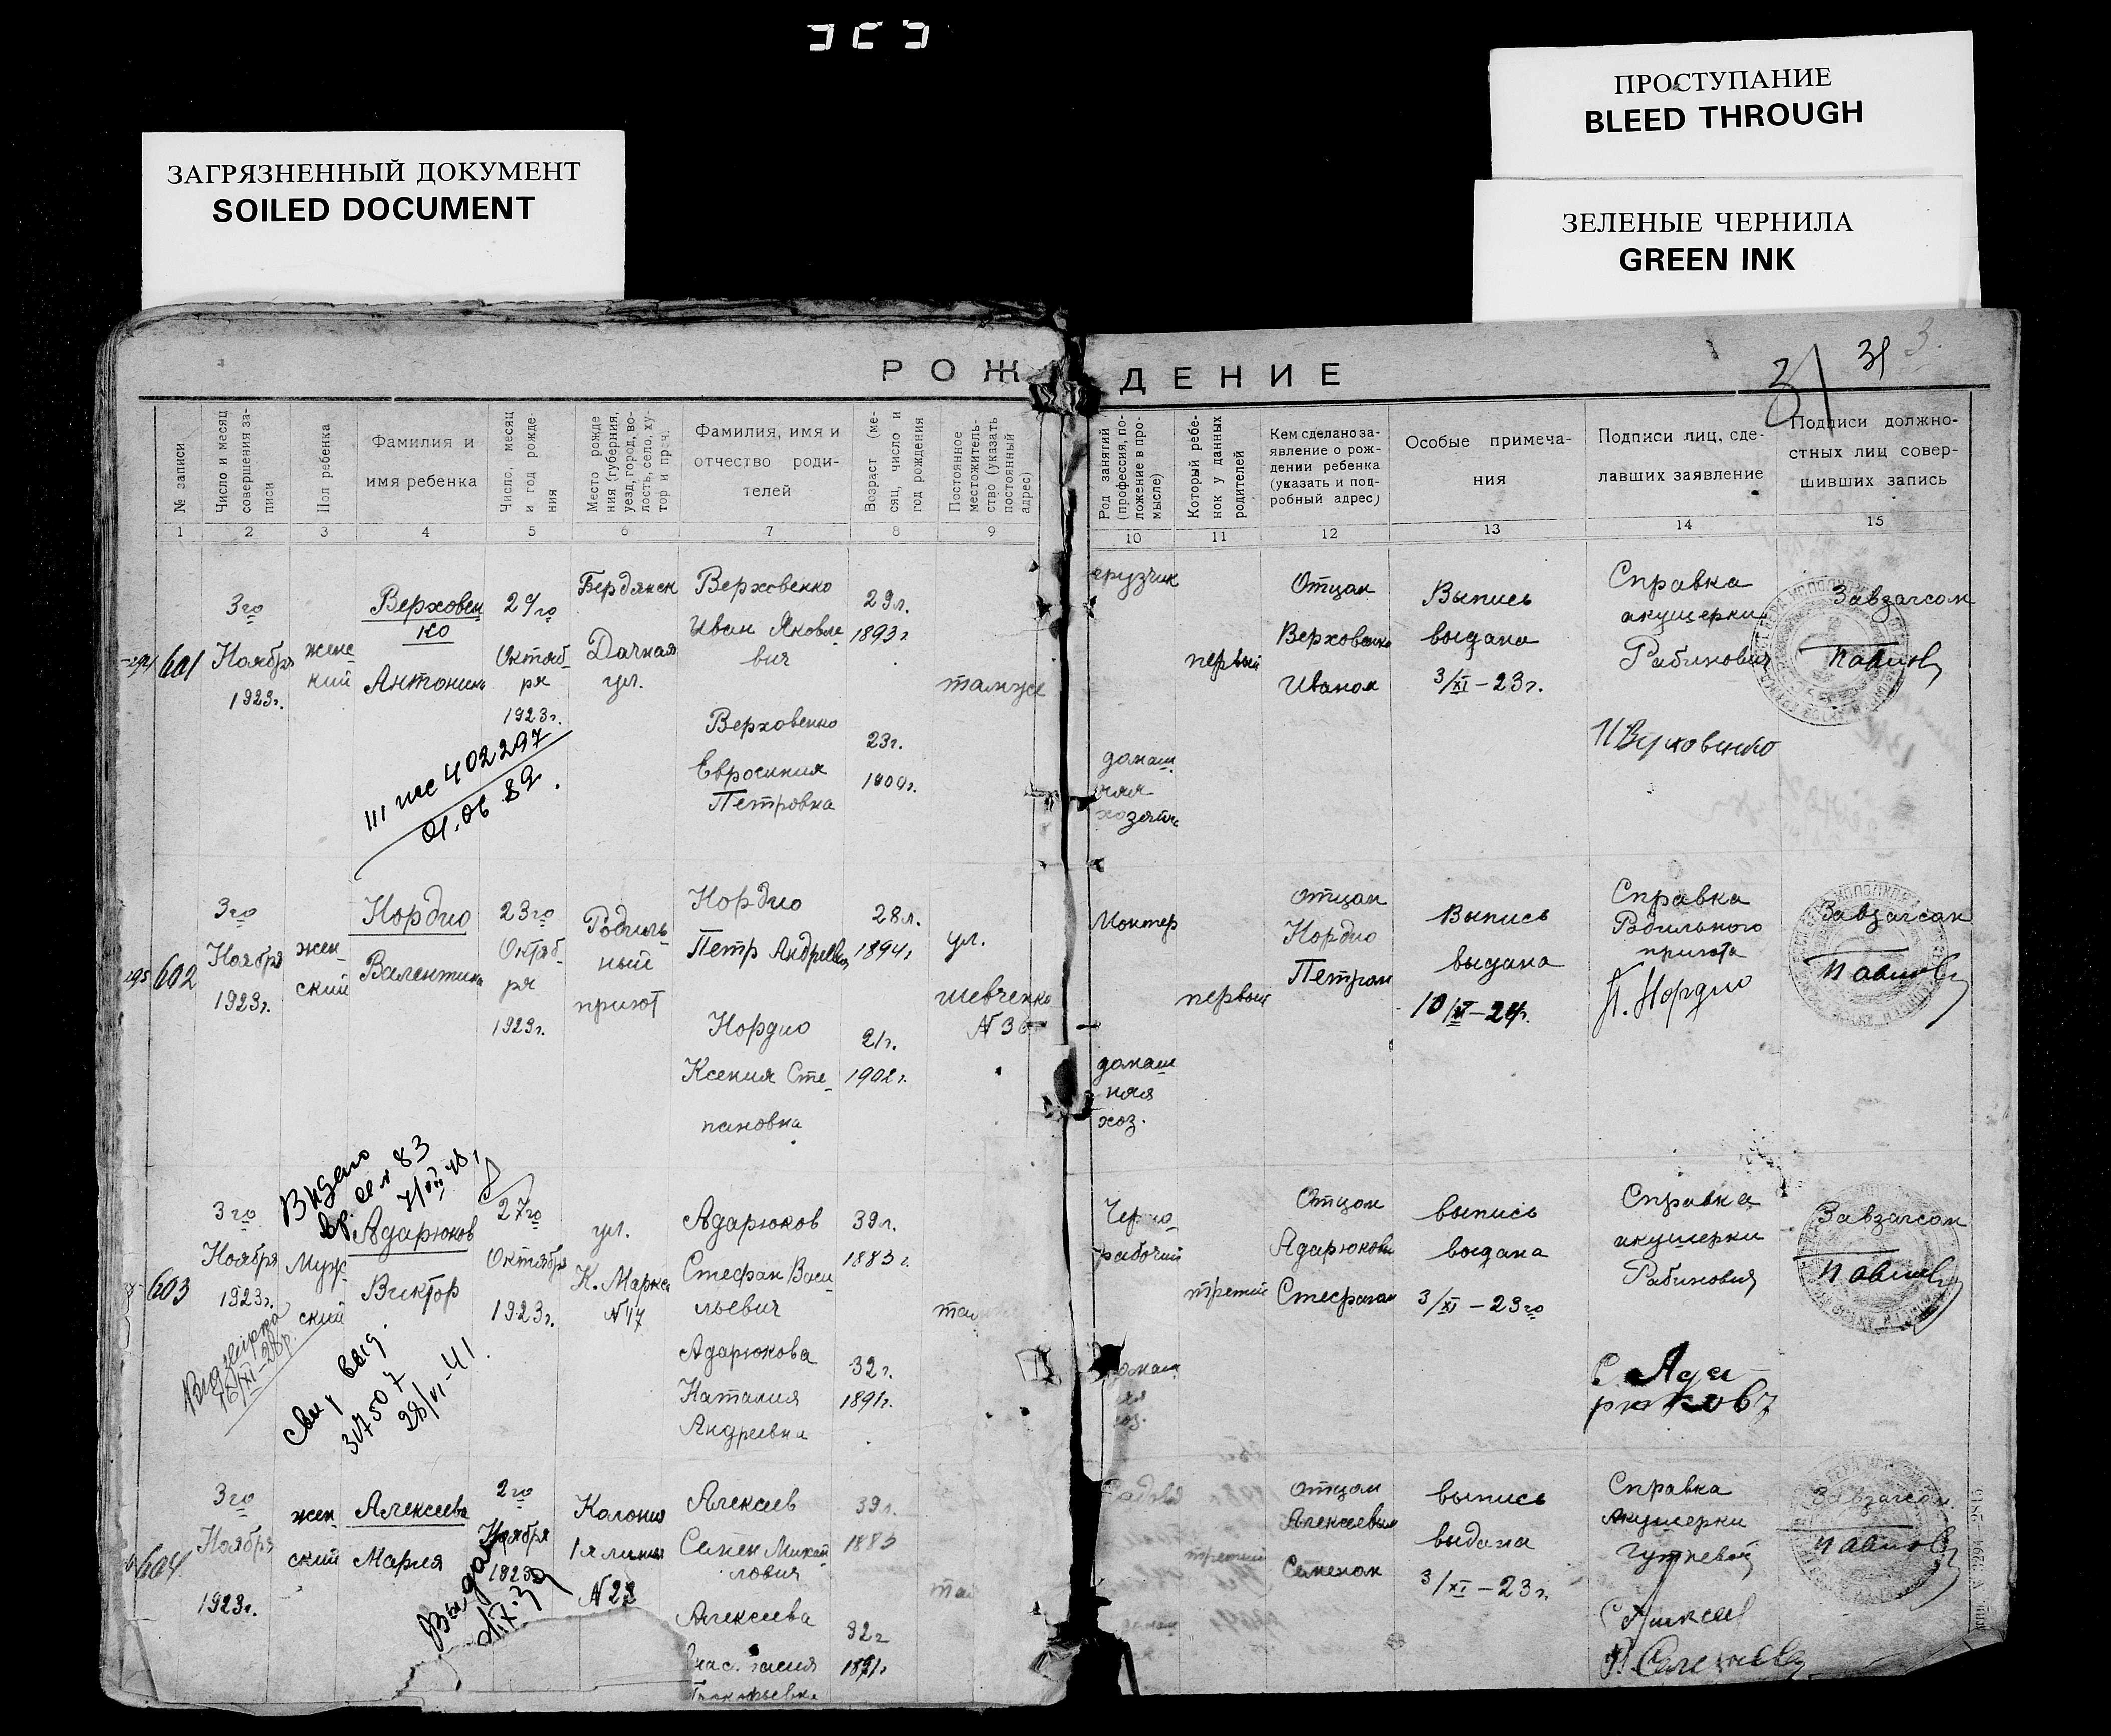 ЗАГРЯЗНЕННЫЙ ДОКУМЕНТ
SOILED DOCUMENT
ПРОСТУПАНИЕ
BLEED THROUGH
ЗЕЛЕНЫЕ ЧЕРНИЛА
GREEN INK
31
РОЖДЕНИЕ
№ записи
Число и месяц
совершения за-
писи
Пол ребенка
Фамилия и
имя ребенка
Число, месяц
и год рожде-
ния
Место рожде
ния (губерния,
уезд, город, во-
лость, село, ху-
тор и проч.
Фамилия, имя и
отчество роди-
телей
Возраст (ме-
сяц, число и
год рождения
Постоянное
местожитель-
ство (указать
постоянный
адрес)
Род занятий
(профессия, по-
ложение в про-
мысле)
Который ребе-
нок у данных
родителей
Кем сделано за-
явление о рож-
дении ребенка
(указать и под-
робный адрес)
Особые примеча-
ния
Подписи лиц, сде-
лавших заявление
Подписи должно-
стных лиц совер-
шивших запись
1 2 3 4 5 6 7 8 9 10 11 12 13 14 15
601
3го
Ноября
1923г.
женс-
кий
Верховен
ко
Антонина
29го
Октяб-
ря
1923г.
Бердянск
Дачная
ул.
Верховенко
Иван Яковле
вич
Верховенко
Евросиния
Петровна
29л.
1893г
23г.
1900г.
тамже
грузчик
домаш.
няя
хозяйк
первый
Отцом
Верховенко
Иваном
Выпись
выдана
3/XI-23г.
Справка
акушерки
Рабинович
И Верховенко
Завзагсом
Павлов
402297
01.06.82.
602
3го
Ноября
1923г.
жен-
ский
Нордио
Валентина
23го
Октяб-
ря
1923г.
Родиль-
ный
приют
Нордио
Петр Андреев
Нордио
Ксения Сте-
пановна
28л.
1894г
21г.
1902г.
ул.
Шевченко
N 36
Монтер
домаш
няя
хоз.
первый
Отцом
Нордио
Петром
Выпись
выдана
10/XI-24г.
Справка
Родильного
приюта
П. Нордио
Завзагсом
Павлов
603
3го
Ноября
1923г.
Муж-
ский
Адарюков
Виктор
27го
Октября
1923г.
ул.
К. Маркса
N 47
Адарюков
Стефан Васи
льевич
Адарюкова
Наталия
Андреевна
39л.
1883г.
32г.
1891г.
Черно-
рабочий
третий
Отцом
Адарюковым
Стефаном
выпись
выдана
3/XI-23го
Справка
акушерки
Рабинович
С. Ада
рюковъ
Завзагсом
Павлов
выд.
28/VI-41.
604
3го
Ноября
1923г.
жен
ский
Алексеева
Мария
2го
Ноября
1923г
Колония
1я линия
N 28
Алексеев
Семен Михай
лович
Алексеева
39л.
1883
32г
1891г
третий
Отцом
Алексеевым
Семеном
выпись
выдана
3/XI-23г.
Справка
Акушерки
С Алексеев
Завзагсом
Павлов
Выдан